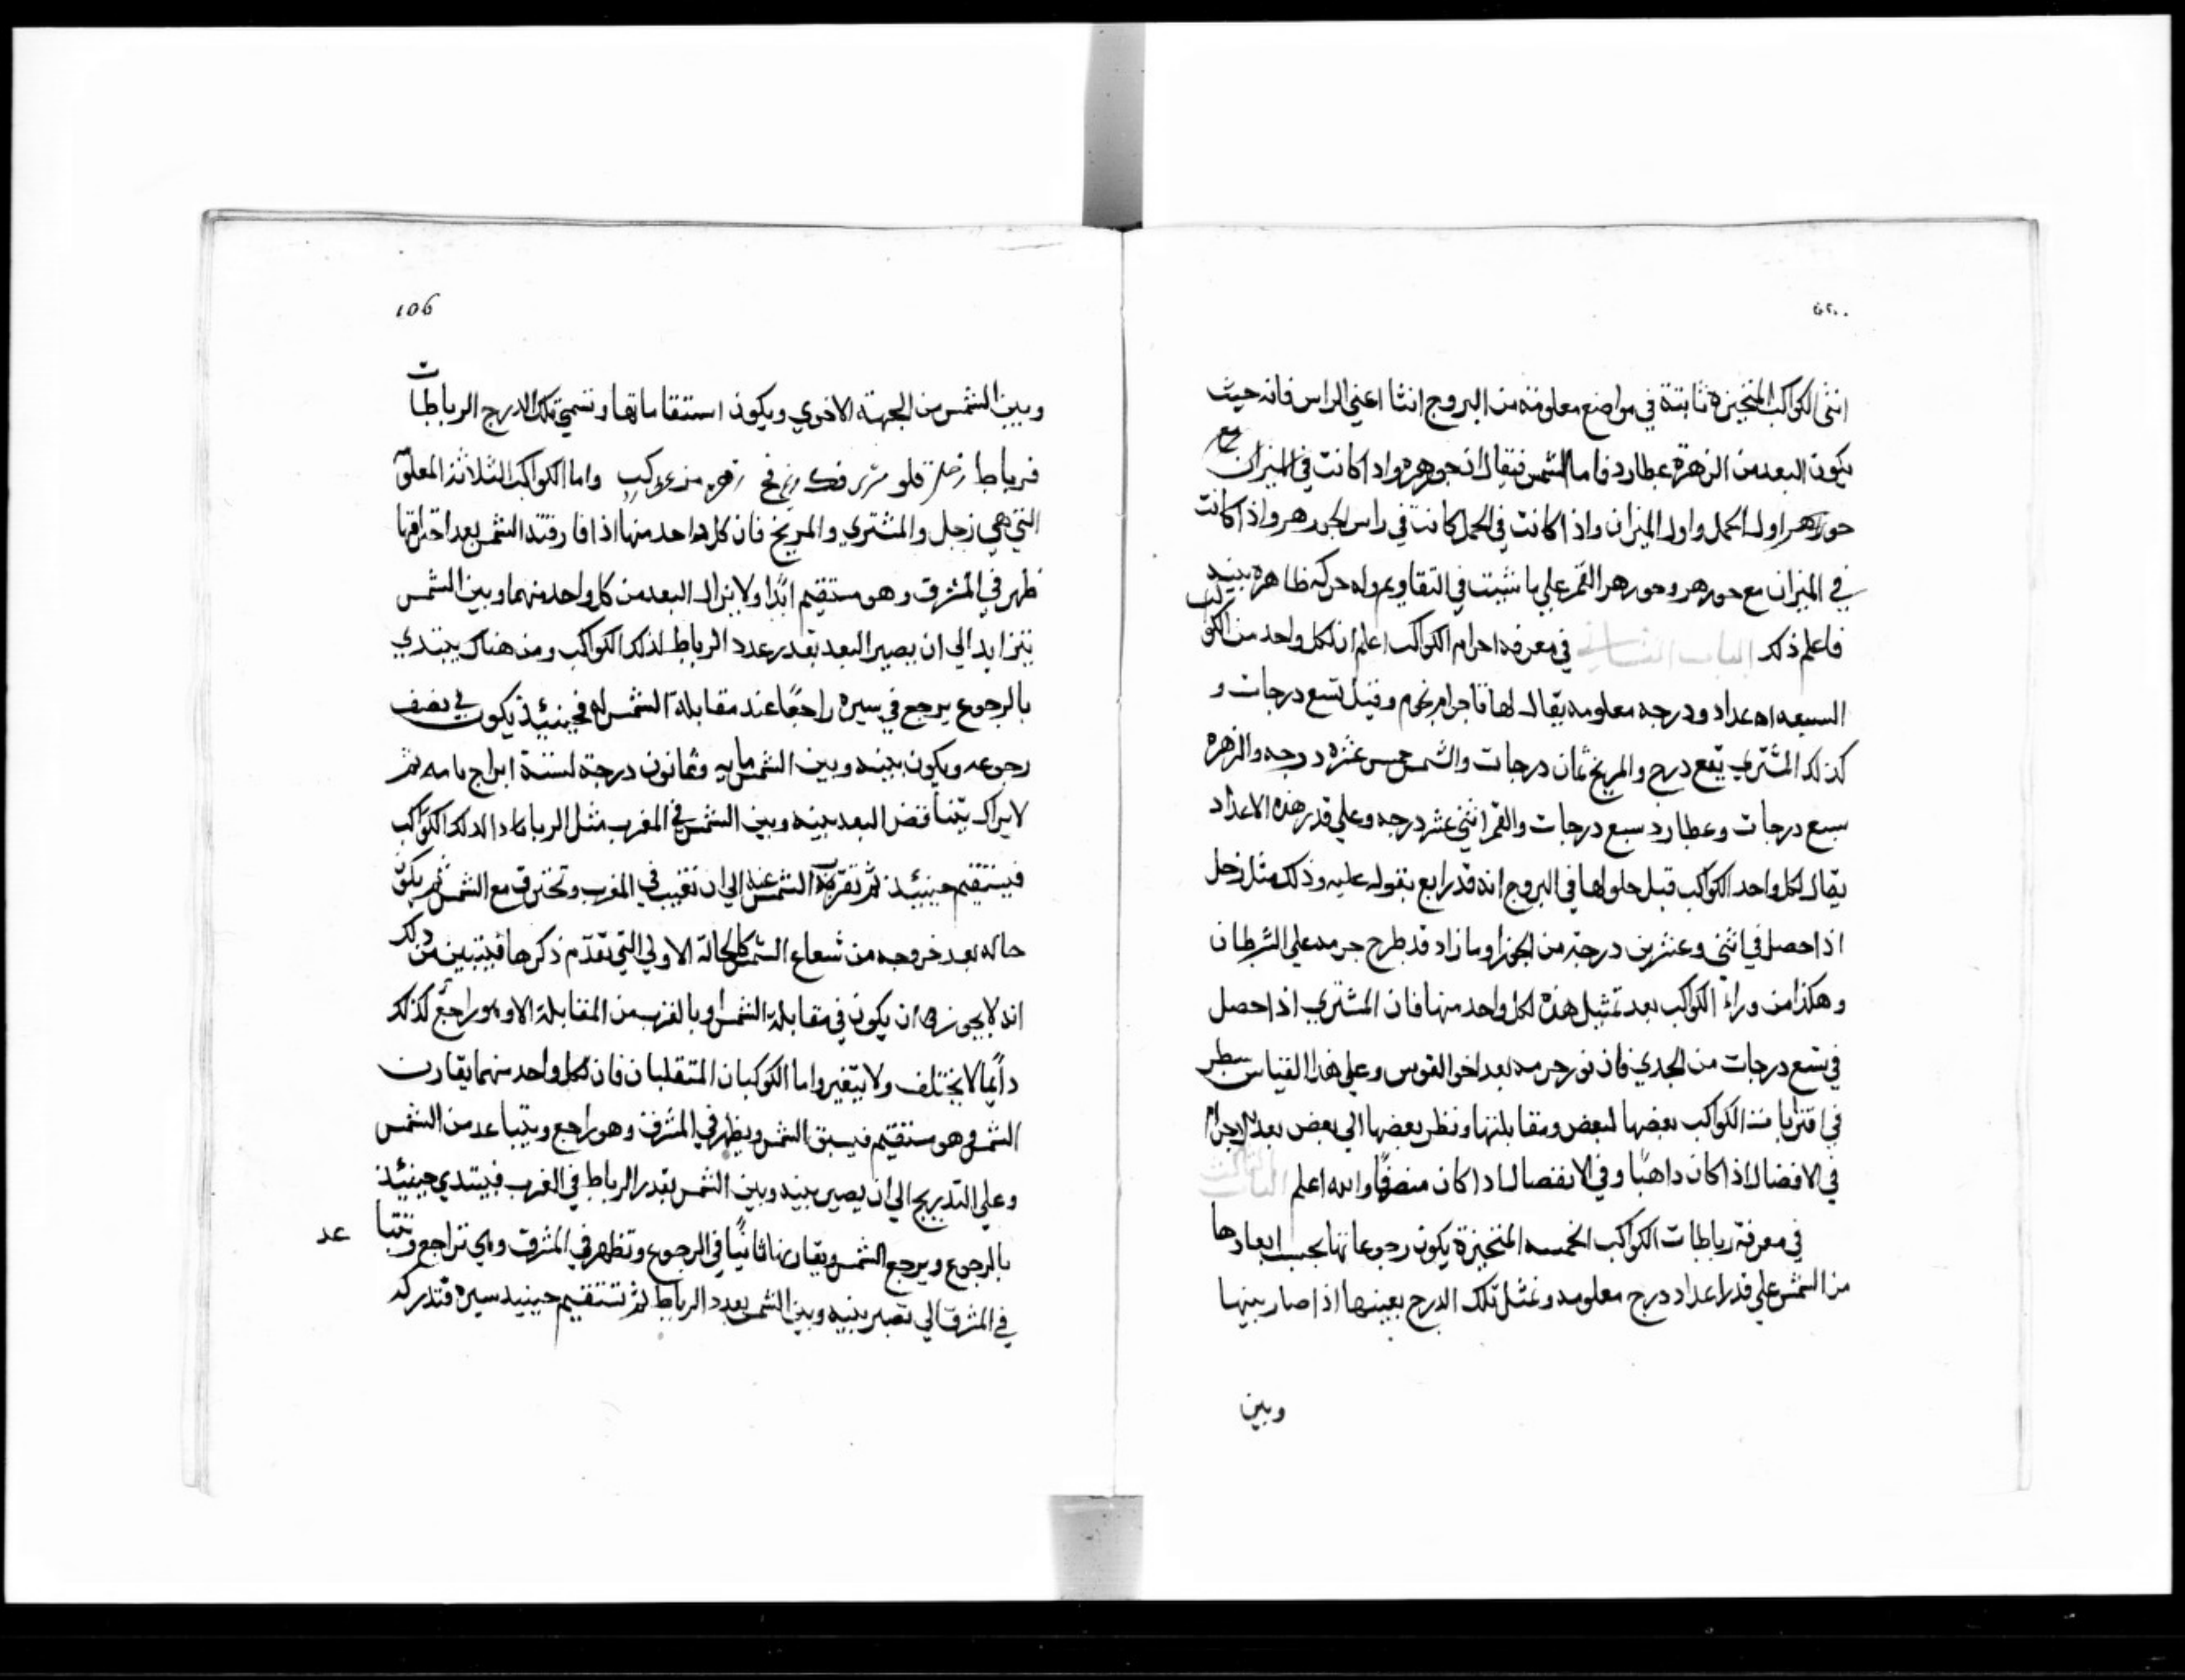 اثنى الكواكب المتحيزه ثابتة في مواضع معلومة من البروج انثا اعني الراس فانه حيث
يكون البعد من الزهرة عطارد فاما الشمس فيقال ان جوهره واد اكانت في الميزان مع
حوزهر اول الحمل واول الميزان واذا كانت في الحمل كانت في راس الجوزهر واذا كانت
في الميزان مع حوزهر وحوزهر القمر علي ما نثبت في التقاويم وله حركه ظاهره بينه
فاعلم ذلك الباب الثاني في معرفه اجرام الكواكب اعلم ان لكل واحد من الكواكب
السبعه اعداد ودرجه معلومه يقال لها اجرام وقيل تسع درجات و
كذلك المشتري تسع درج والمريخ ثمان درجات والشمس خمس عشره درجه والزهره
سبع درجات وعطارد سبع درجات والقمر اثني عشر درجه وعلي قدر هذه الاعداد
يقال لكل واحد الكواكب قبل حلولها في البروج انه قد رابع بقوله عليه وذلك مثل زحل
اذا حصل في اثني وعشرين درجة من الجوزا وما زاد قد طرح جرمه علي الشرطان
وهكذا من وراء الكواكب بعد تمثيل هذه لكل واحد منها فان المشتري اذا حصل
في تسع درجات من الجدي فان نور جرمه بعد اخر القوس وعلي هذا القياس سطر
في اقترابا من الكواكب بعضها لبعض ومقابلتها ونظر بعضها الي بعض بعد الاجرام
في الافضال اذا كان داهبا وفي الانفصال اد اكان منصرفا والله اعلم الباب الثالث
في معرفة رباطات الكواكب الخمسه المتحيزة يكون رجوعاتها بحسب ابعادها
من الشمس علي قدر اعداد درج معلومه وغثل تلك الدرج بعينها اذا صار بينها
وبين
106
وبين الشمس من الجهة الاخري ويكون استقاماتها وتسمي تلك الدرج الرباطات
فرباط زحل قلو واما الكواكب الثلاثة المعلق
التي هي زحل والمشتري والمريخ فان كل واحد منها اذا فارقته الشمس بعد احتراقها
ظهر في المشرق وهو مستقيم ابدا ولا يزال البعد من كل واحد منهما وبين الشمس
يتزايد الي ان يصير البعد بقدر عدد الرباط لذلك الكواكب ومن هناك يبتدي
بالرجوع يرجع في سيره راجعا عند مقابلة الشمس له فحينئذ يكون في نصف
رجوعه ويكون بينه وبين الشمس مايه وثمانون درجة لستة ابراج تامه ثم
لا يزال يتناقض البعد بينه وبين الشمس في المغرب مثل الرباط لذلك الكواكب
فيستقيم حينئذ ثم تقربة الشمس عنه الي ان تغيب في المغرب وتحترق مع الشمس ثم يكون
حاله بعد خروجه من شعاع الشمس كالحالة الاولي التي تقدم ذكرها فيتبين من ذلك
انه لا يجوز ان يكون في مقابلة الشمس او بالقرب من المقابلة الا وهو راجع كذلك
دائما لا يختلف ولا يتغير واما الكوكبان المتقلبان فان لكل واحد منهما يقارن
الشمس وهو مستقيم فيسبق الشمس ويظهر في المشرق وهو راجع ويتباعد من الشمس
وعلي التدريج الي ان يصير بينه وبين الشمس بقدر الرباط في الغرب فيبتدي حينئذ
بالرجوع ويرجع الشمس ويقارنها ثانيا في الرجوع وتظهر في المشرق وهي تراجع وتتبا عد
في المشرق الي تصير بينه وبين الشمس بعدد الرباط ثم تستقيم حينيد سيره فتدرك